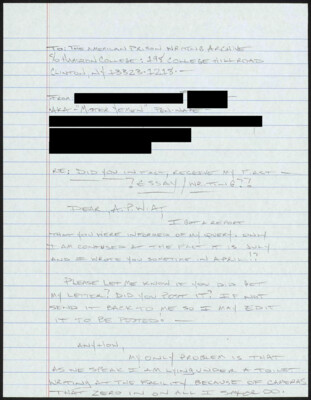 TO: THE AMERICAN PRISON WRITING ARCHIVE
c/o HAMILTON COLLEGE: 198 COLLEGE HILL ROAD
CLINTON, NY 13323-1218 -
FROM
AKA - "MISTER" "PEN-NAME"
RE: DID YOU IN FACT, RECEIVE MY FIRST
? ESSAY / WRITING??
DEAR, A.P.W.A,
I GOT A REPORT
THAT YOU WERE INFORMED OF MY QUERY. ONLY
I AM CONFUSED AT THE FACT IT IS JULY
AND I WROTE YOU SOMETIME IN APRIL!?
PLEASE LET ME KNOW IF YOU DID GET
MY LETTER? DID YOU POST IT? IF NOT
SEND IT BACK TO ME SO I MAY EDIT
IT TO BE POSTED. -
ANYHOW,
MY ONLY PROBLEM IS THAT
AS WE SPEAK I AM UNDER A TOILET
WRITING AT THE FACILITY BECAUSE OF CAMERAS
THAT ZERO IN ON ALL I